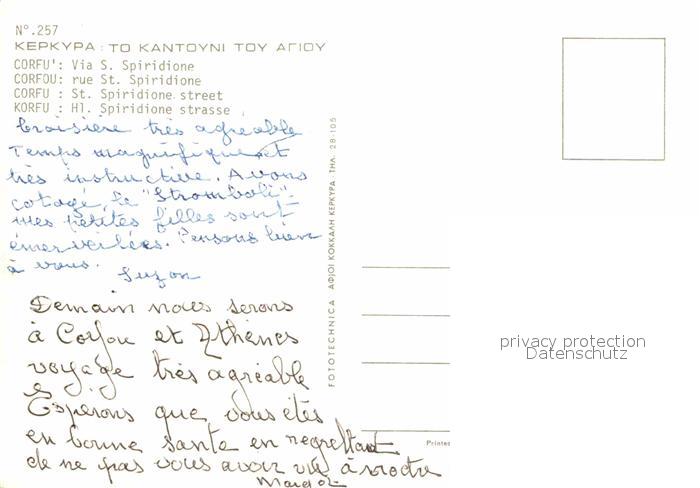 N°.257
ΚΕΡΚΥΡΑ : ΤΟ ΚΑΝΤΟΥΝΙ ΤΟΥ ΑΓΙΟΥ
CORFU': Via S. Spiridione
CORFOU: rue St. Spiridione
CORFU : St. Spiridione street
KORFU : Hl. Spiridione strasse
Croisière très agréable
Temps magnifique et
très instructive. Avons
cotoyé le "Stromboli"
mes petites filles sont
émerveilées. Pensons bien
à vous.
Suzon
Demain nous serons
à Corfou et Athènes
voyage très agréable
Esperons que vous êtes
en bonne sante en regrettant
de ne pas vous avoir vu à
FOTOTECHNICA ΑΦΙΟΙ ΚΟΚΚΑΛΗ ΚΕΡΚΥΡΑ. ΤΗΛ. 28-105
privacy protection
Datenschutz
Printed